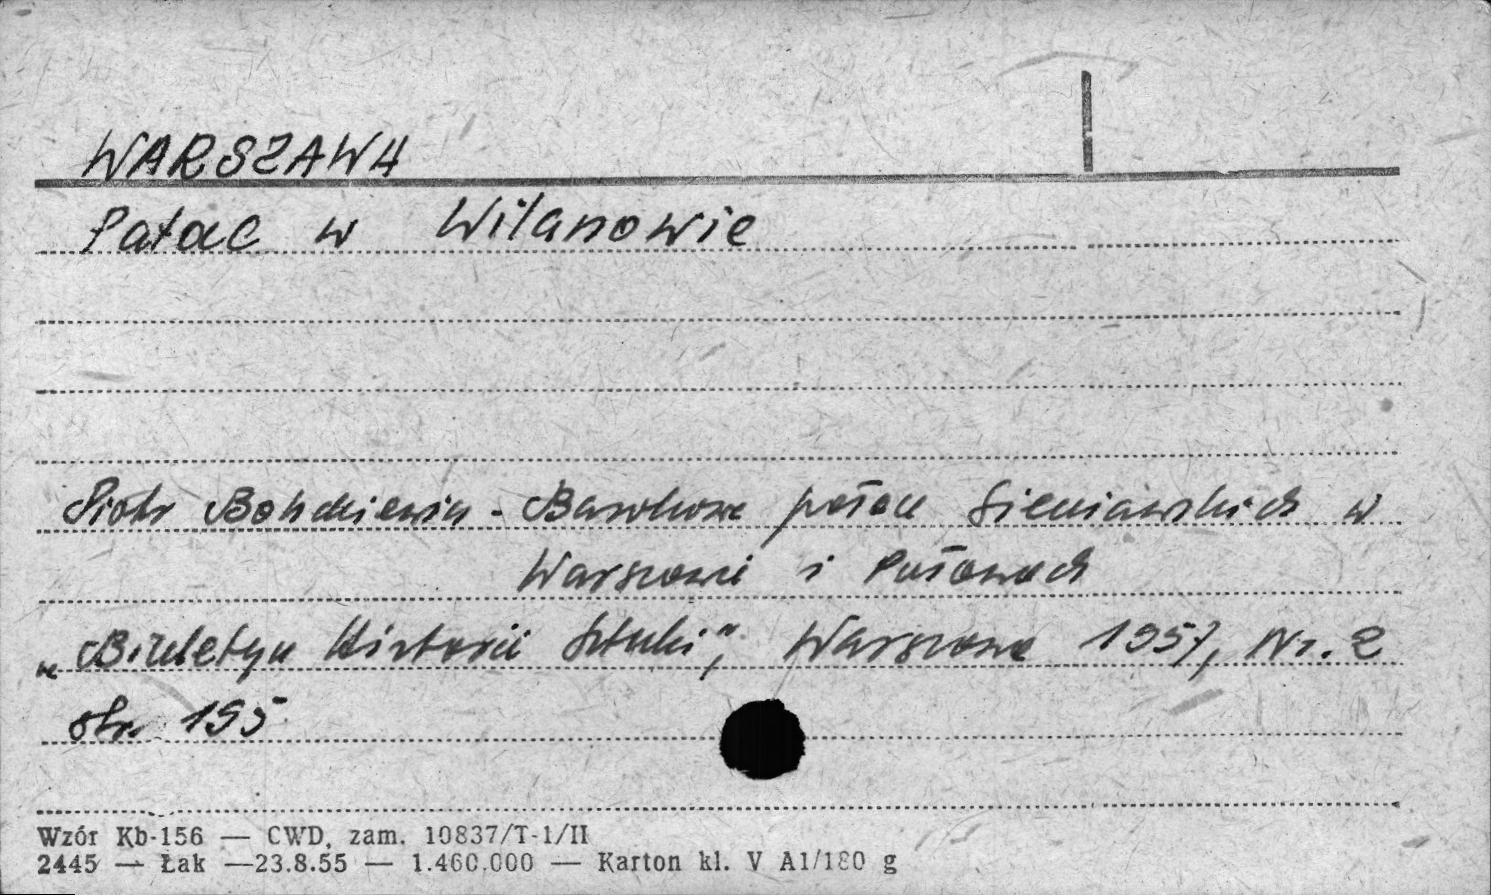 WARSZAWA
Pałac w Wilanowie
Piotr Bohdziewicz - Barokowe pałace Sieniawskich w
Warszawie i Puławach
„Biuletyn Historii Sztuki", Warszawa 1957, Nr. 2
str. 195
Wzór Kb-156 — CWD, zam. 10837/T-1/II
2445 — Łak —23.8.55 — 1.460.000 — Karton kl. V A1/180 g